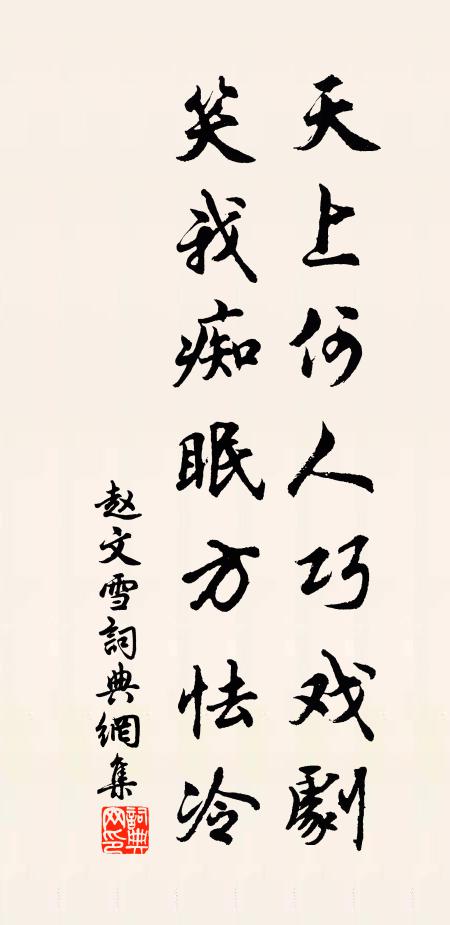 天上何人巧戏劇
笑我痴眠方怯冷
赵文雪詞典網集
詞典網印